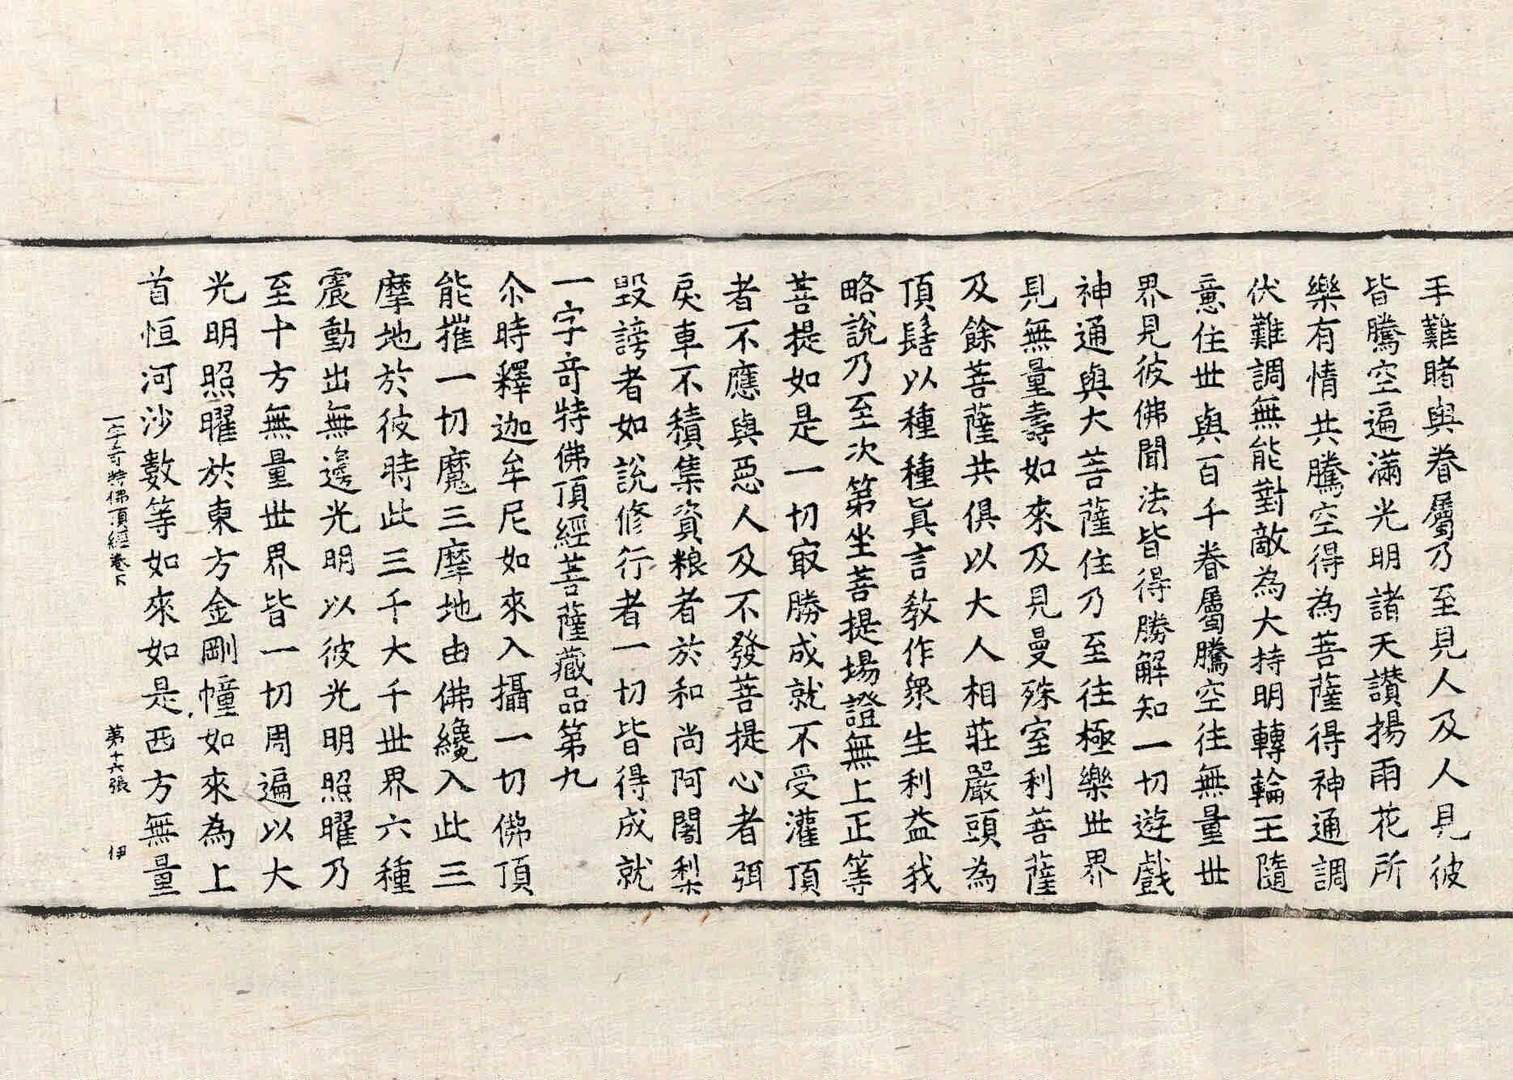 手難睹與眷屬乃至見人及人見彼
皆騰空遍滿光明諸天讃揚雨花所
樂有情共騰空得為菩薩得神通調
伏難調無能對敵為大持明轉輪王隨
意住世與百千眷屬騰空往無量世
界見彼佛聞法皆得勝解知一切遊戲
神通與大菩薩住乃至往極樂世界
見無量壽如來及見曼殊室利菩薩
及餘菩薩共俱以大人相莊嚴頭為
頂髻以種種眞言教作衆生利益我
略說乃至次第坐菩提場證無上正等
菩提如是一切㝡勝成就不受灌頂
者不應與惡人及不發菩提心者弭
戾車不積集資粮者於和尚阿闍梨
毀謗者如說修行者一切皆得成就
一字奇特佛頂經菩薩藏品第九
尒時釋迦牟尼如來入攝一切佛頂
能摧一切魔三摩地由佛纔入此三
摩地於彼時此三千大千世界六種
震動出無邊光明以彼光明照曜乃
至十方無量世界皆一切周遍以大
光明照曜於東方金剛幢如來為上
首恒河沙數等如來如是西方無量
一字奇特佛頂經卷下 第十六張 伊